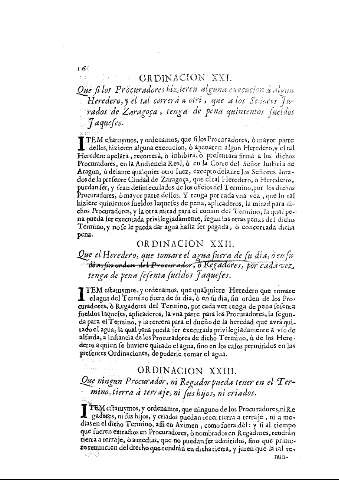 ORDINACION XXI.
Que si los Procuradores hizieren alguna execucion à algun
Heredero, y el tal correrà à otri, que a los Señores Ju-
rados de Zaragoça, tenga de pena quinientos sueldos
Jaqueses.
ITEM estatuymos, y ordenamos, que si los Procuradores, ò mayor parte
dellos, hizieren alguna execucion, ò apenaren algun Heredero, y el tal
Heredero apelarà, recorrerà, ò inhibirà, ò presentarà firma à los dichos
Procuradores, en la Audiencia Real, ò en la Corte del Señor Justicia de
Aragon, ò delante qualquier otro Juez, excepto delante los Señores Jura-
dos de la presente Ciudad de Zaragoça, que el tal Heredero, ò Herederos,
puedan ser, y sean desinsaculados de los oficios del Termino, por los dichos
Procuradores, ò mayor parte dellos. Y tenga por cada una vez, que lo tal
hiziere quinientos sueldos Jaqueses de pena, aplicaderos, la mitad para di-
chos Procuradores, y la otra mitad para el comun del Termino, la qual pe-
na pueda ser executada privilegiadamente, segun las otras penas del dicho
Termino, y no se le pueda dar agua hasta ser pagada, ò concertada dicha
pena.
ORDINACION XXII.
Que el Heredero, que tomare el agua fuera de su dia, ò en su
dia, sin orden del Procurador, ò Regadores, por cada vez,
tenga de pena sesenta sueldos Jaqueses.
ITEM estatuymos, y ordenamos, que qualquiere Heredero que tomare
el agua del Termino fuera de su dia, ò en su dia, sin orden de los Pro-
curadores, ò Regadores del Termino, por cada vez tenga de pena sesenta
sueldos Jaqueses, aplicaderos, la una parte para los Procuradores, la segun-
da para el Termino, y la tercera para el dueño de la heredad que avrà qui-
tado el agua, la qual pena pueda ser executada privilegiadamente à uso de
alfarda, à instancia de los Procuradores de dicho Termino, ò de los Here-
deros à quien se huviere quitado el agua, sino en los casos permitidos en las
presentes Ordinaciones, de poderse tomar el agua.
ORDINACION XXIII.
Que ningun Procurador, ni Regador pueda tener en el Ter-
mino, tierra à terraje, ni sus hijos, ni criados.
ITEM estatuymos, y ordenamos, que ninguno de los Procuradores, ni Re-
gadores, ni sus hijos, y criados puedan tener tierra à terraje, ni à me-
dias en el dicho Termino, assi en Arimen, como fuera dèl: y si al tiempo
que fueren extractos en Procuradores, ò nombrados en Regadores, tendràn
tierra à terraje, ò à medias, que no puedan ser admitidos, sino que prime-
ro renuncien del derecho que tendràn en dicha tierra, y juren que la tal re-
nun-